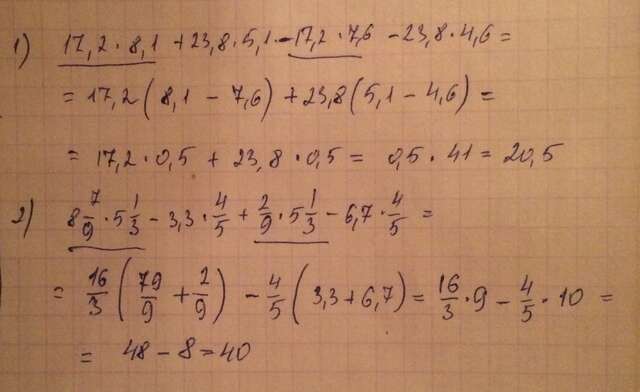 1) 17,2 · 8,1 + 23,8 · 5,1 - 17,2 · 7,6 - 23,8 · 4,6 =
= 17,2 ( 8,1 - 7,6 ) + 23,8 ( 5,1 - 4,6 ) =
= 17,2 · 0,5 + 23,8 · 0,5 = 0,5 · 41 = 20,5
2) 8 7/9 · 5 1/3 - 3,3 · 4/5 + 2/9 · 5 1/3 - 6,7 · 4/5 =
= 16/3 ( 79/9 + 2/9 ) - 4/5 ( 3,3 + 6,7 ) = 16/3 · 9 - 4/5 · 10 =
= 48 - 8 = 40